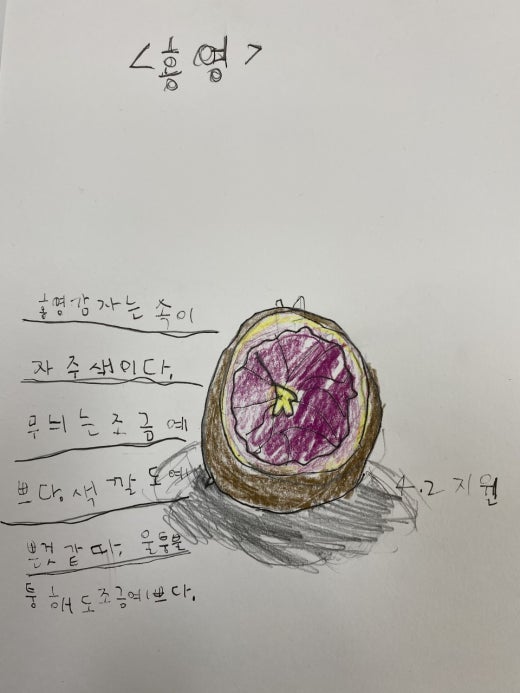 <홍영>
홍영감자는 속이
자주색이다.
무늬는 조금 예
쁘다. 색깔도 예
쁜것 같다. 울퉁불
퉁해도조금예쁘다.
4.2 지원